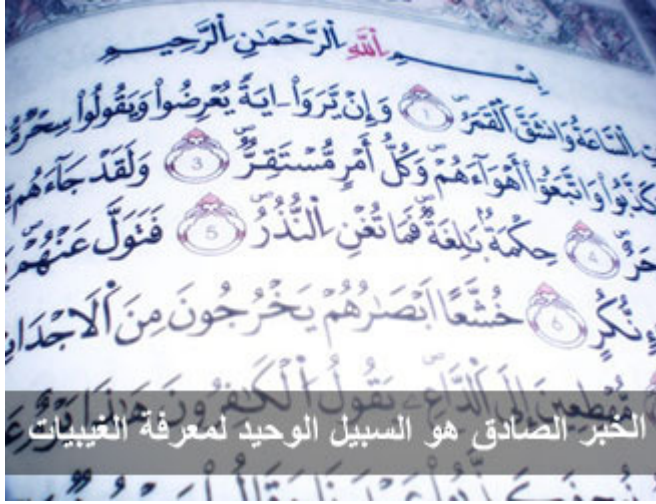 بِسْمِ اِ۬للَّهِ اِ۬لرَّحْمَٰنِ اِ۬لرَّحِيمِ
اِ۬لسَّاعَةُ وَانشَقَّ اَ۬لْقَمَرُ 1 وَإِنْ يَّرَوَاْ ايَةٗ يُعْرِضُواْ وَيَقُولُواْ سِحْرٞ
كَذَّبُواْ وَاتَّبَعُواْ أَهْوَآءَهُمْ وَكُلُّ أَمْرٖ مُّسْتَقِرّٞ 3 وَلَقَدْ جَآءَهُم
4 حِكْمَةُۢ بَٰلِغَةٞ فَمَا تُغْنِ اِ۬لنُّذُرُ 5 فَتَوَلَّ عَنْهُمْ
نُّكُرٍ 6 خُشَّعاً اَبْصَٰرُهُمْ يَخْرُجُونَ مِنَ اَ۬لَاجْدَاثِ
مُّهْطِعِينَ إِلَى اَ۬لدَّاعِۦ يَقُولُ اُ۬لْكَٰفِرُونَ هَٰذَا يَوْمٌ
الخبر الصادق هو السبيل الوحيد لمعرفة الغيبيات